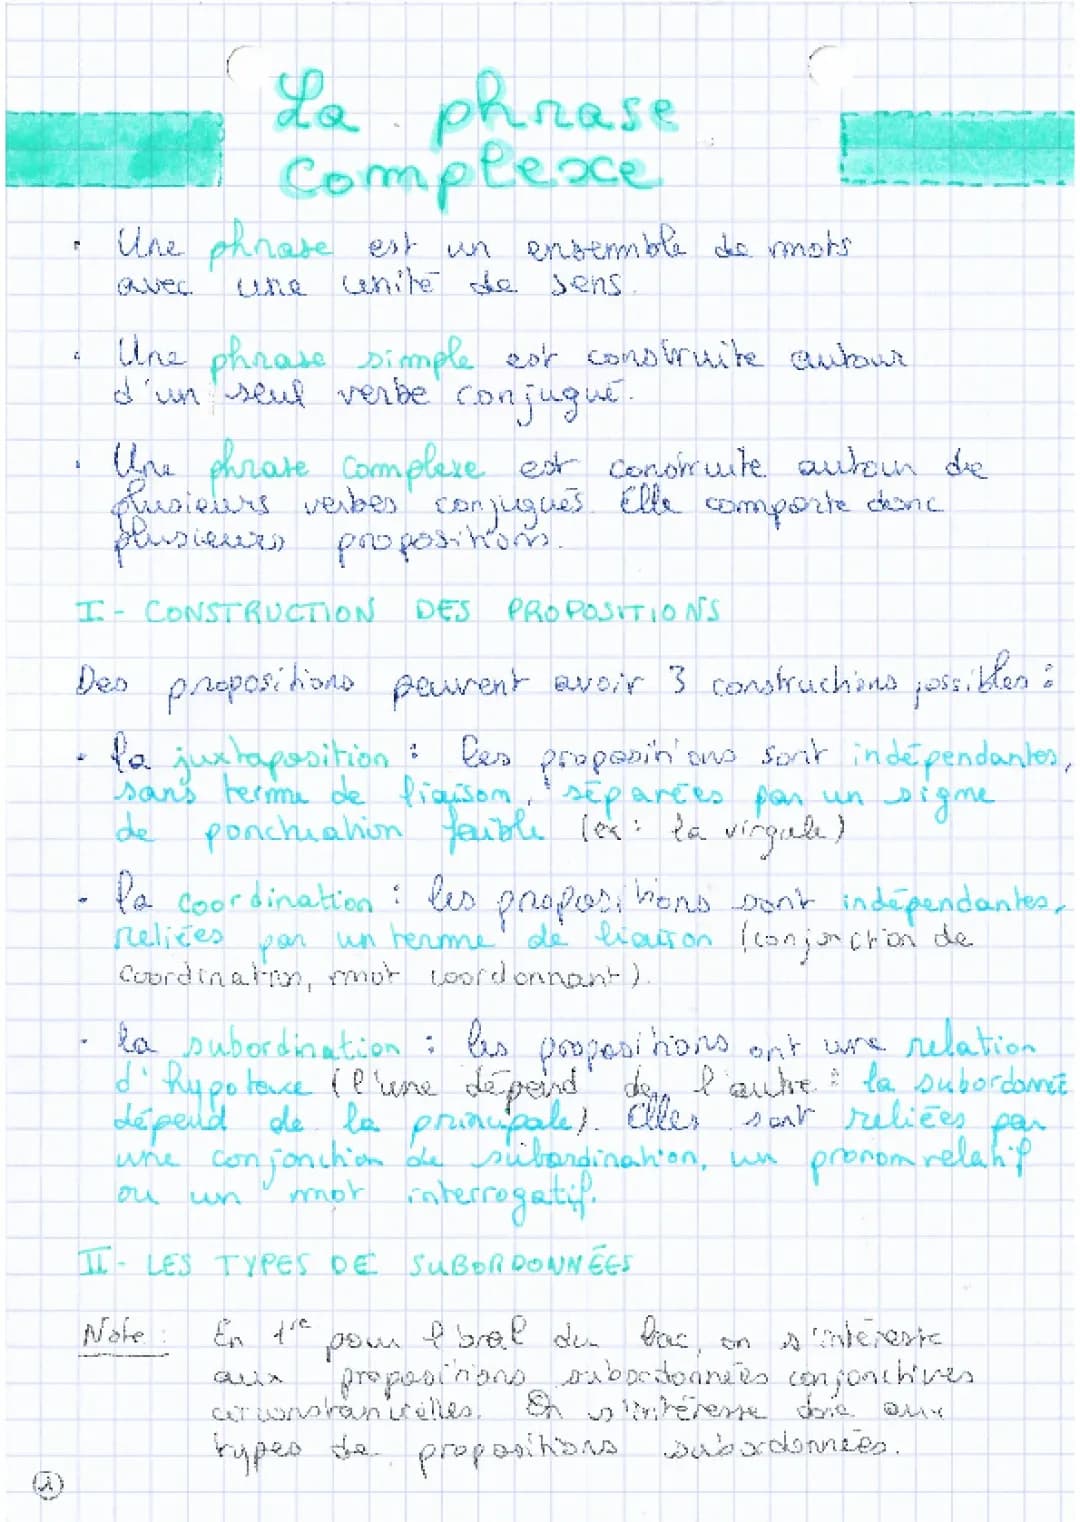 La phrase
complexe
• Une phrase est un ensemble de mots
avec une unité de sens.
• Une phrase simple est construite autour
d'un seul verbe conjugué.
• Une phrase complexe est construite autour de
plusieurs verbes conjugués. Elle comporte donc
plusieurs propositions.
I - CONSTRUCTION DES PROPOSITIONS
Des propositions peuvent avoir 3 constructions possibles :
• la juxtaposition : les propositions sont indépendantes,
sans terme de liaison, séparées par un signe
de ponctuation faible (ex : la virgule)
• la coordination : les propositions sont indépendantes,
reliées par un terme de liaison (conjonction de
coordination, mot coordonnant).
• la subordination : les propositions ont une relation
d'hypotaxe (l'une dépend de l'autre : la subordonnée
dépend de la principale). Elles sont reliées par
une conjonction de subordination, un pronom relatif
ou un mot interrogatif.
II - LES TYPES DE SUBORDONNÉES
Note : En 1re pour l'oral du bac, on s'intéresse
aux propositions subordonnées conjonctives
circonstancielles. On s'intéresse donc aux
types de propositions subordonnées.
1